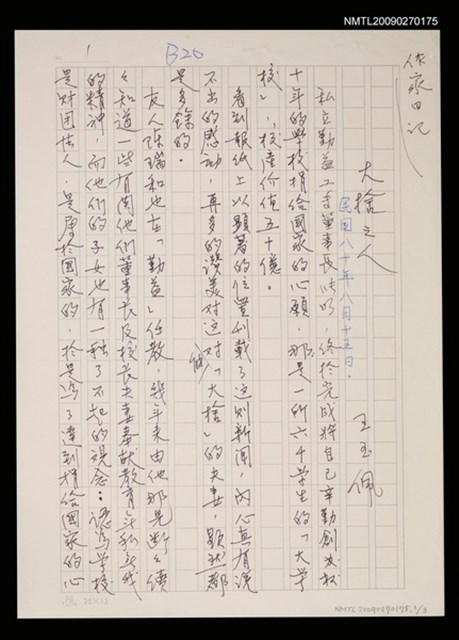 NMTL20090270175
1
B20
作家日記
大捨之人
民國八十年八月十五日.
王玉佩
私立勤益工專董事長,終於完成將自己辛勤創校
十年的學校捐給國家的心願,那是一所六千學生的「大學
校」,校產價值五十億。
看到報紙上以顯著的位置刊載了這則新聞,內心真有說
不出的感動,再多的讚美对这对「大捨」的夫妻,顯然都
是多餘的。
友人陳瑞和也在「勤益」任教,幾年來由他那兒斷斷續
續知道一些有関他們董事長及校長夫妻奉献教育
的精神,而他們的子女也有一種了不起的观念:認為學校
是財団法人,是屬於國家的,於是為了達到捐給國家的心
25×12
NMTL20090270175.1/3